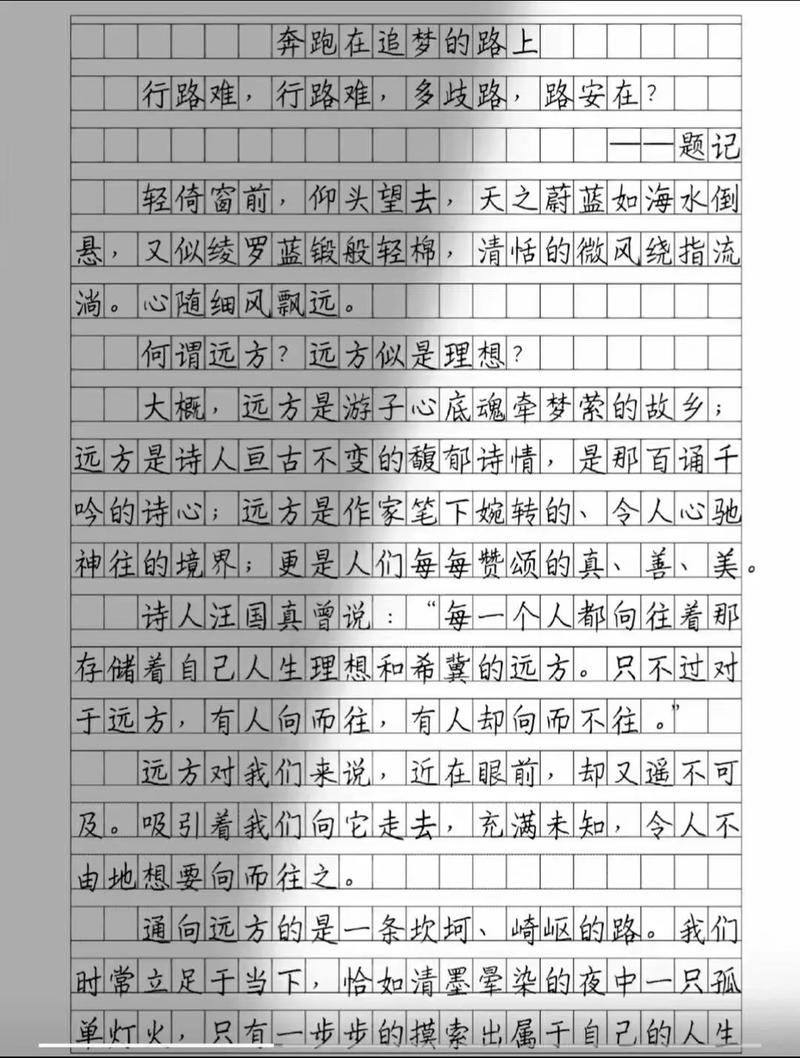 奔跑在追梦的路上
行路难，行路难，多歧路，路安在？
——题记
轻倚窗前，仰头望去，天之蔚蓝如海水倒
悬，又似绫罗蓝锻般轻棉，清恬的微风绕指流
淌。心随细风飘远。
何谓远方？远方似是理想？
大概，远方是游子心底魂牵梦萦的故乡；
远方是诗人亘古不变的馥郁诗情，是那百诵千
吟的诗心；远方是作家笔下婉转的、令人心驰
神往的境界；更是人们每每赞颂的真、善、美。
诗人汪国真曾说：“每一个人都向往着那
存储着自己人生理想和希冀的远方。只不过对
于远方，有人向而往，有人却向而不往。”
远方对我们来说，近在眼前，却又遥不可
及。吸引着我们向它走去，充满未知，令人不
由地想要向而往之。
通向远方的是一条坎坷、崎岖的路。我们
时常立足于当下，恰如清墨晕染的夜中一只孤
单灯火，只有一步步的摸索出属于自己的人生